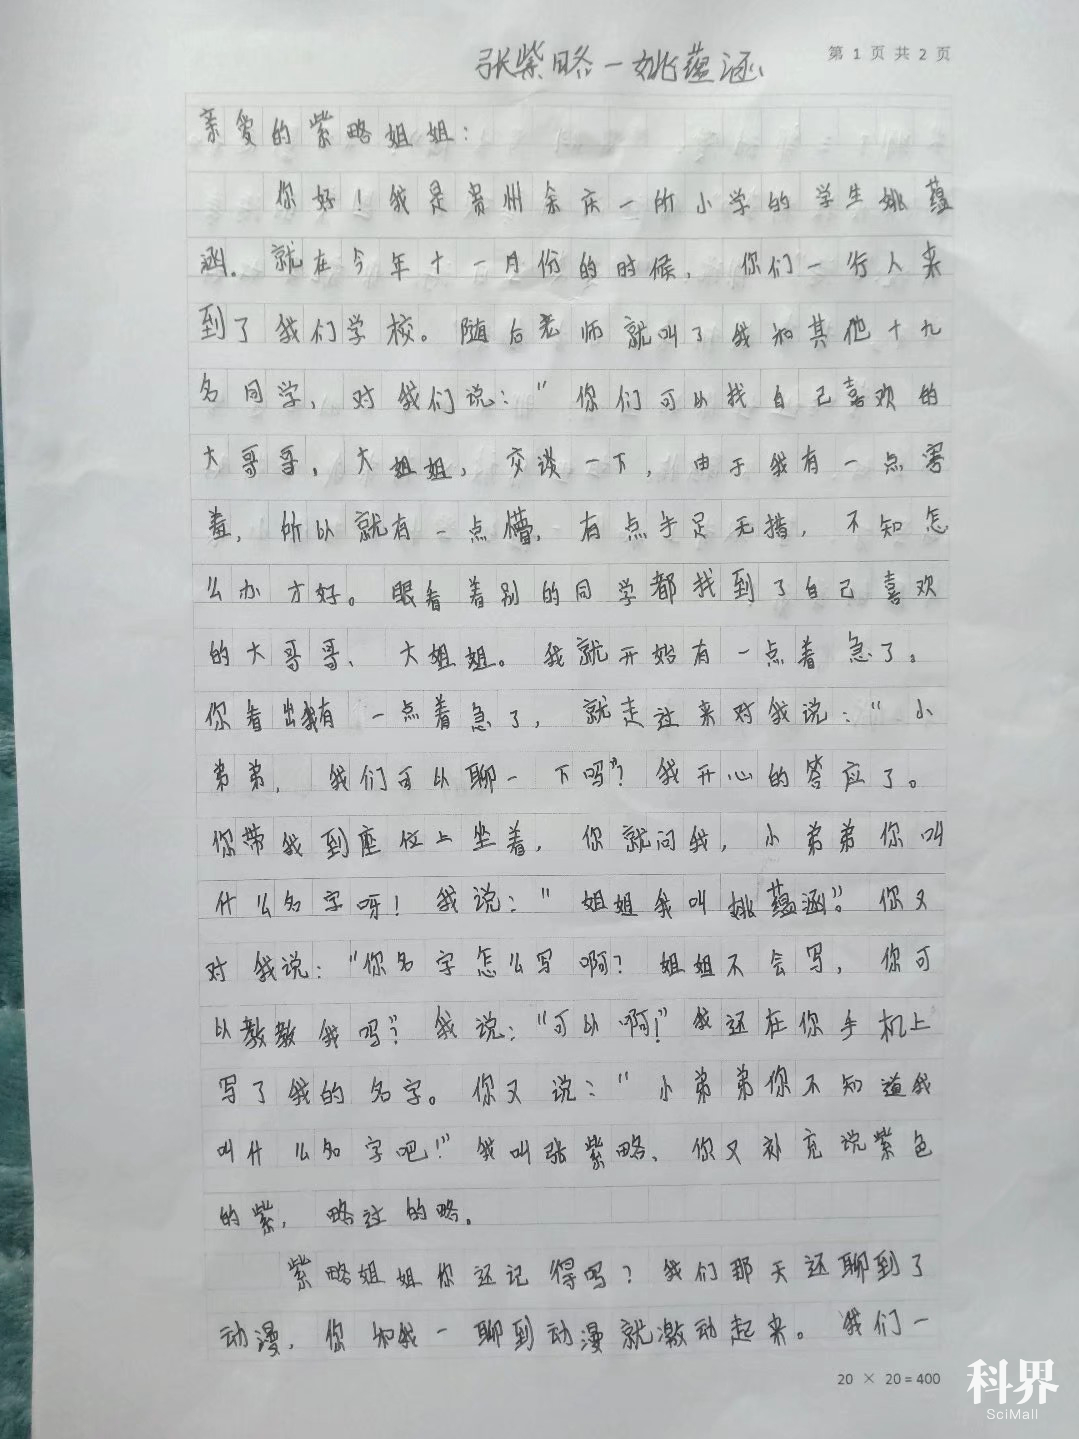 第 1 页 共 2 页
张紫略—姚蕴涵
亲爱的紫略姐姐：
你好！我是贵州余庆一所小学的学生姚蕴
涵。就在今年十一月份的时候，你们一行人来
到了我们学校。随后老师就叫了我和其他十九
名同学，对我们说：“你们可以找自己喜欢的
大哥哥，大姐姐，交谈一下，由于我有一点害
羞，所以就有一点懵，有点手足无措，不知怎
么办才好。眼看着别的同学都找到了自己喜欢
的大哥哥、大姐姐。我就开始有一点着急了。
你看出我有一点着急了，就走过来对我说：“小
弟弟，我们可以聊一下吗”？我开心的答应了。
你带我到座位上坐着，你就问我，小弟弟你叫
什么名字呀！我说：“姐姐我叫姚蕴涵”。你又
对我说：“你名字怎么写啊？姐姐不会写，你可
以教教我吗？”我说：“可以啊！”我还在你手机上
写了我的名字。你又说：“小弟弟你不知道我
叫什么名字吧！”我叫张紫略、你又补充说紫色
的紫，略过的略。
紫略姐姐你还记得吗？我们那天还聊到了
动漫，你和我一聊到动漫就激动起来。我们一
20 × 20 = 400
科界
SciMall